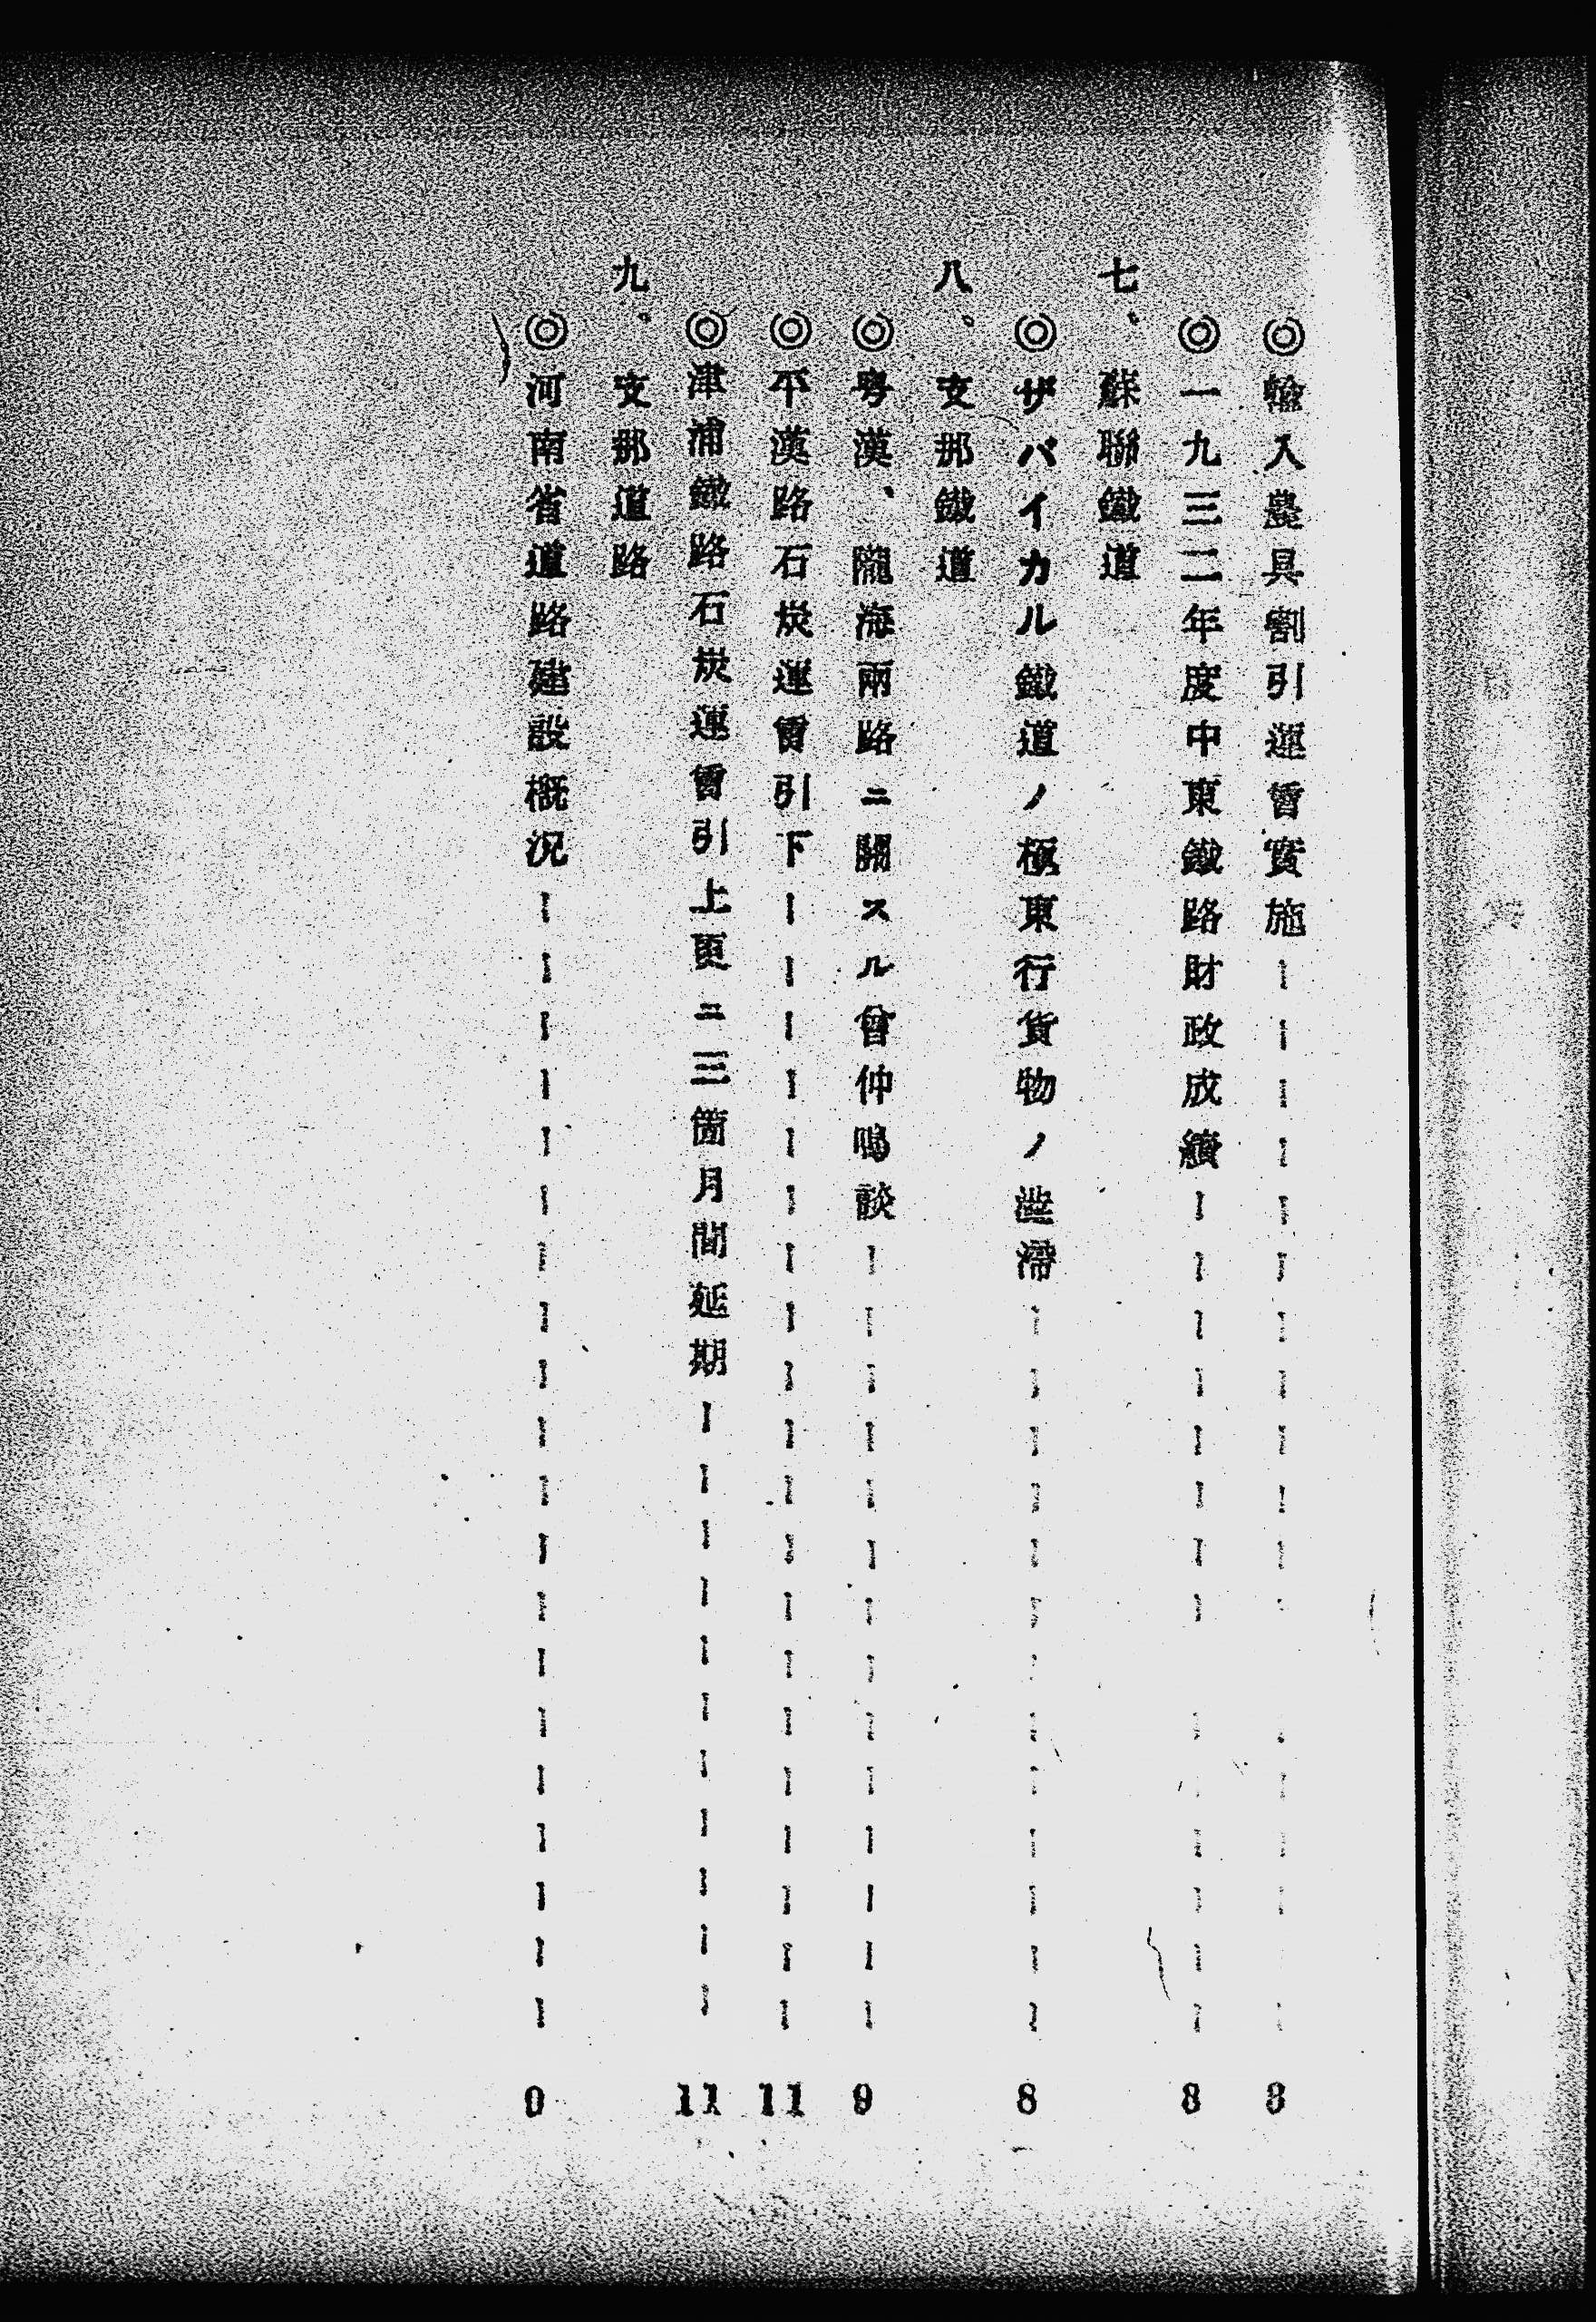 ◎輸入農具割引運賃實施————————————————— 8
◎一九三二年度中東鐵路財政成績————————————— 8
七、蘇聯鐵道
◎ザバイカル鐵道ノ極東行貨物ノ澁滯————————————— 8
八、支那鐵道
◎粤漢、隴海兩路ニ關スル曾仲鳴談—————————————— 9
◎平漢路石炭運賃引下———————————————————— 11
◎津浦鐵路石炭運賃引上更ニ三箇月間延期——————————— 11
九、支那道路
◎河南省道路建設概況———————————————————— 9